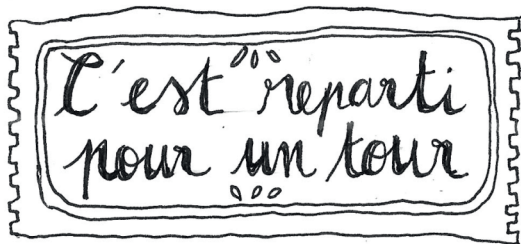 C'est reparti
pour un tour